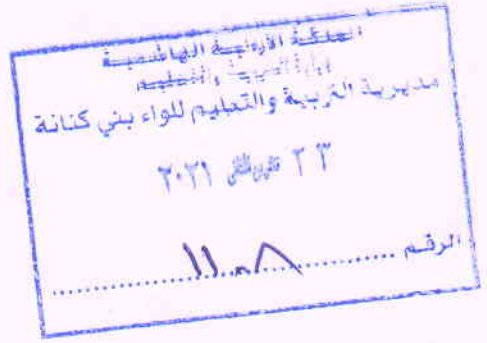 المملكة الأردنية الهاشمية
وزارة التربية والتعليم
مديرية التربية والتعليم للواء بني كنانة
٢٣ تشرين الثاني ٢٠٢١
الرقم ................ ١١٠٠٨ ................